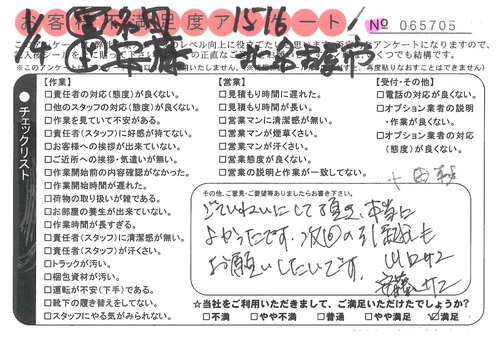 お客様満足度アンケート
1516
No 065705
チェックリスト
【作業】
□責任者の対応(態度)が良くない。
□他のスタッフの対応(態度)が良くない。
□作業を見ていて不安がある。
□責任者(スタッフ)に好感が持てない。
□お客様への挨拶が出来ていない。
□ご近所への挨拶・気遣いが無い。
□作業開始前の内容確認がなかった。
□作業開始時間が遅れた。
□荷物の取り扱いが雑である。
□お部屋の養生が出来ていない。
□作業時間が長すぎる。
□責任者(スタッフ)に清潔感が無い。
□責任者(スタッフ)が汗くさい。
□トラックが汚い。
□梱包資材が汚い。
□運転が不安(下手)である。
□靴下の履き替えをしてない。
□スタッフにやる気がみられない。
【営業】
□見積もりに遅れた。
□見積もり時間が長い。
□営業マンに清潔感が無い。
□営業マンが煙草くさい。
□営業マンが汗くさい。
□営業態度が良くない。
□営業の説明と作業が一致してない。
【受付・その他】
□電話の対応が良くない。
□オプション業者の説明
・作業が良くない。
□オプション業者の対応
(態度)が良くない。
その他、ご意見・ご要望等ありましたらお書き下さい。
ていねいにして頂き、本当に
よかったです。次回の引越も
お願いしたいです。
山口サン
安藤サン
☆当社をご利用いただきまして、ご満足いただけたでしょうか?
□不満 □やや不満 □普通 □やや満足 ☑満足